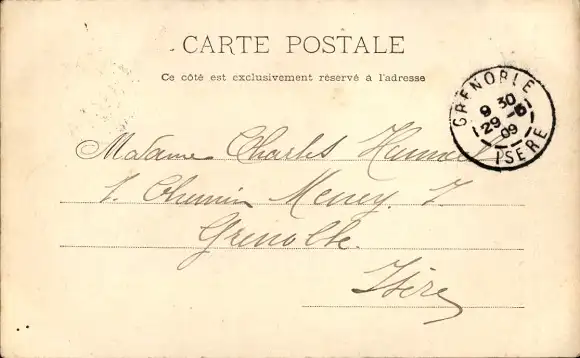 CARTE POSTALE
Ce côté est exclusivement réservé à l'adresse
GRENOBLE
9 30
29 -5
09
ISERE
Madame Charles
Chemin
Grenoble
Isère